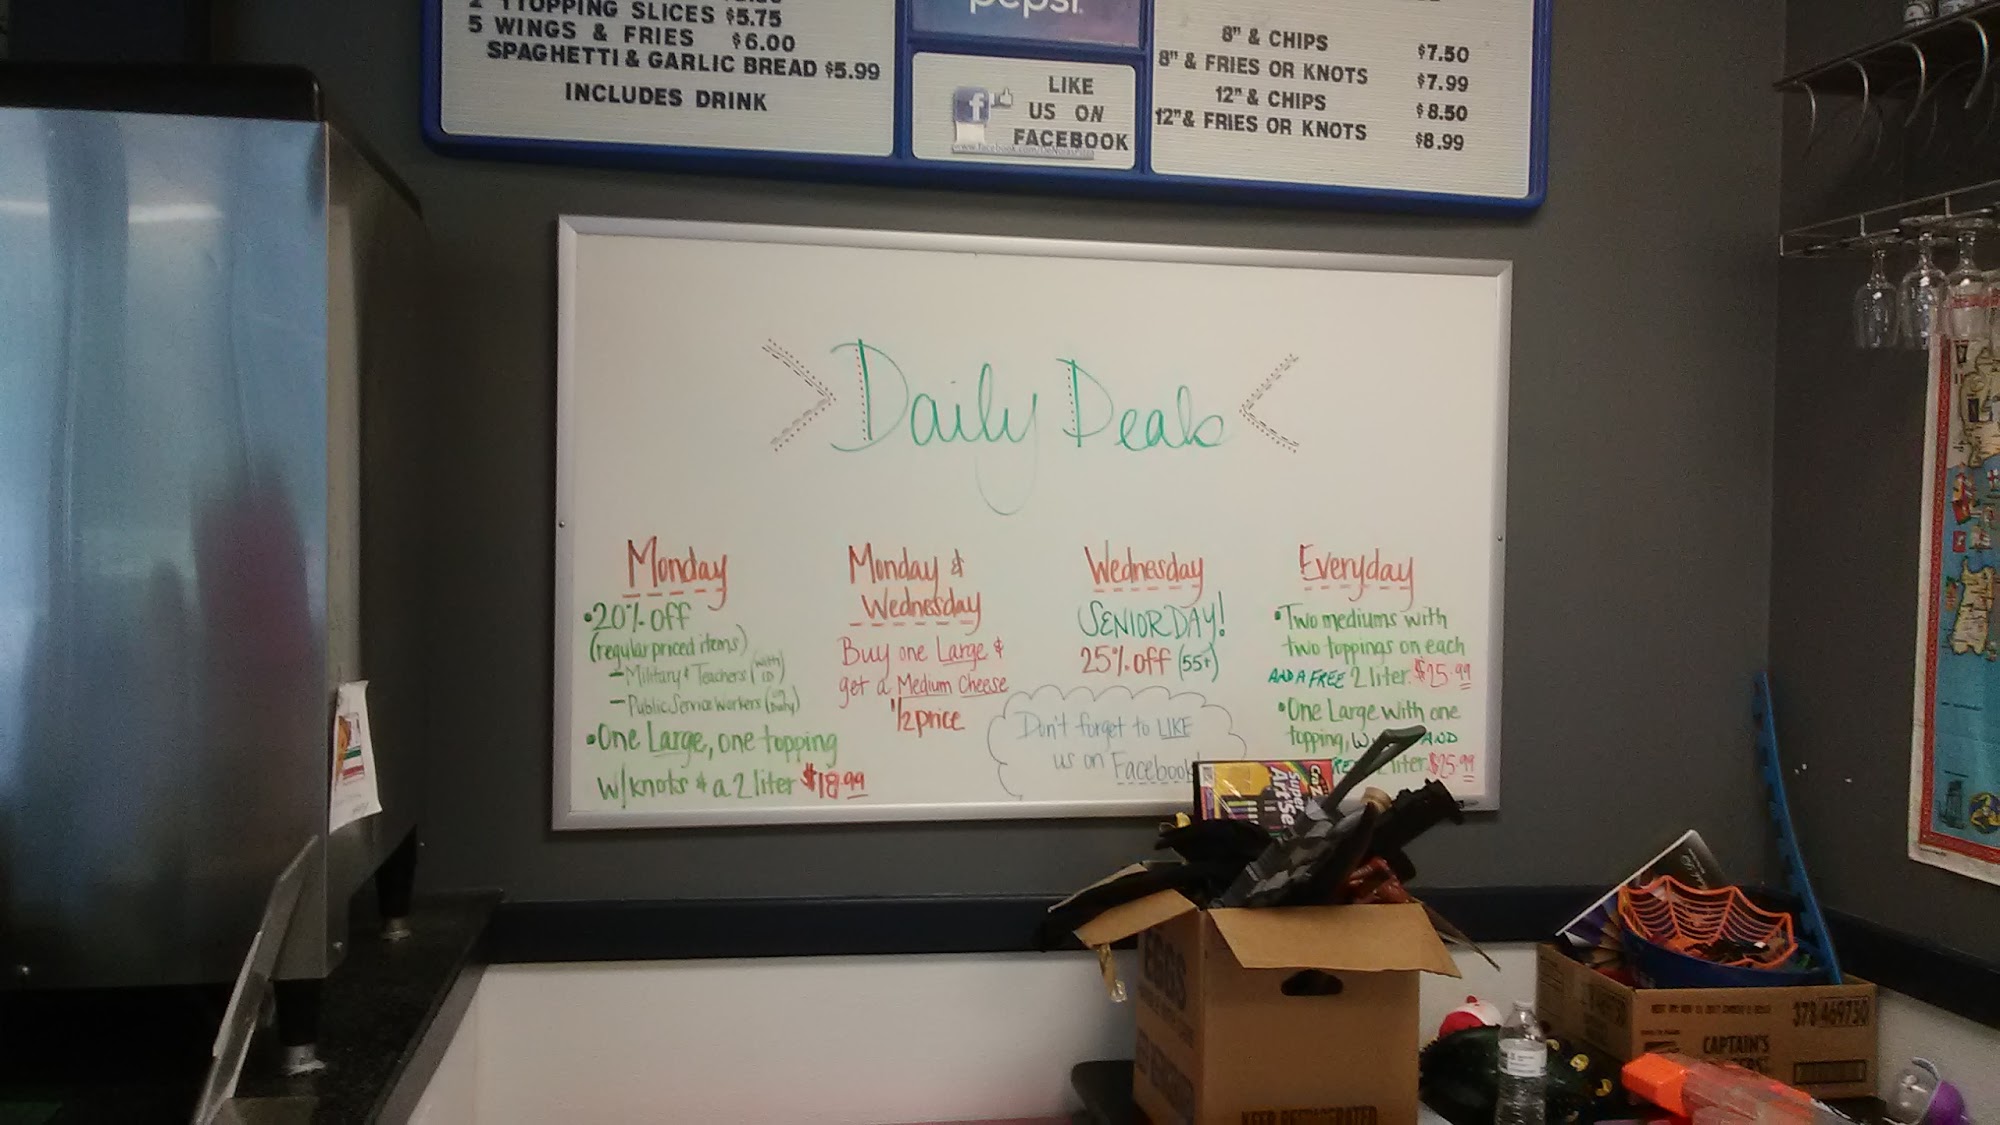 1 TOPPING SLICES $5.75
5 WINGS & FRIES $6.00
SPAGHETTI & GARLIC BREAD $5.99
INCLUDES DRINK
pepsi
LIKE
US ON
FACEBOOK
8" & CHIPS $7.50
8" & FRIES OR KNOTS $7.99
12" & CHIPS $8.50
12" & FRIES OR KNOTS $8.99
Daily Deals
Monday
•20% off
(regular priced items)
- Military & Teachers (with ID)
- Public Service Workers
•One Large, one topping
w/knots & a 2 liter $18.99
Monday &
Wednesday
Buy one Large &
get a Medium Cheese
1/2 price
Wednesday
SENIOR DAY!
25% off (55+)
Don't forget to LIKE
us on Facebook
Everyday
•Two mediums with
two toppings on each
AND A FREE 2 liter. $25.99
•One Large with one
topping, AND
2 liter. $25.99
Super
Art Set
EGGS
KEEP REFRIGERATED
378 469730
CAPTAIN'S